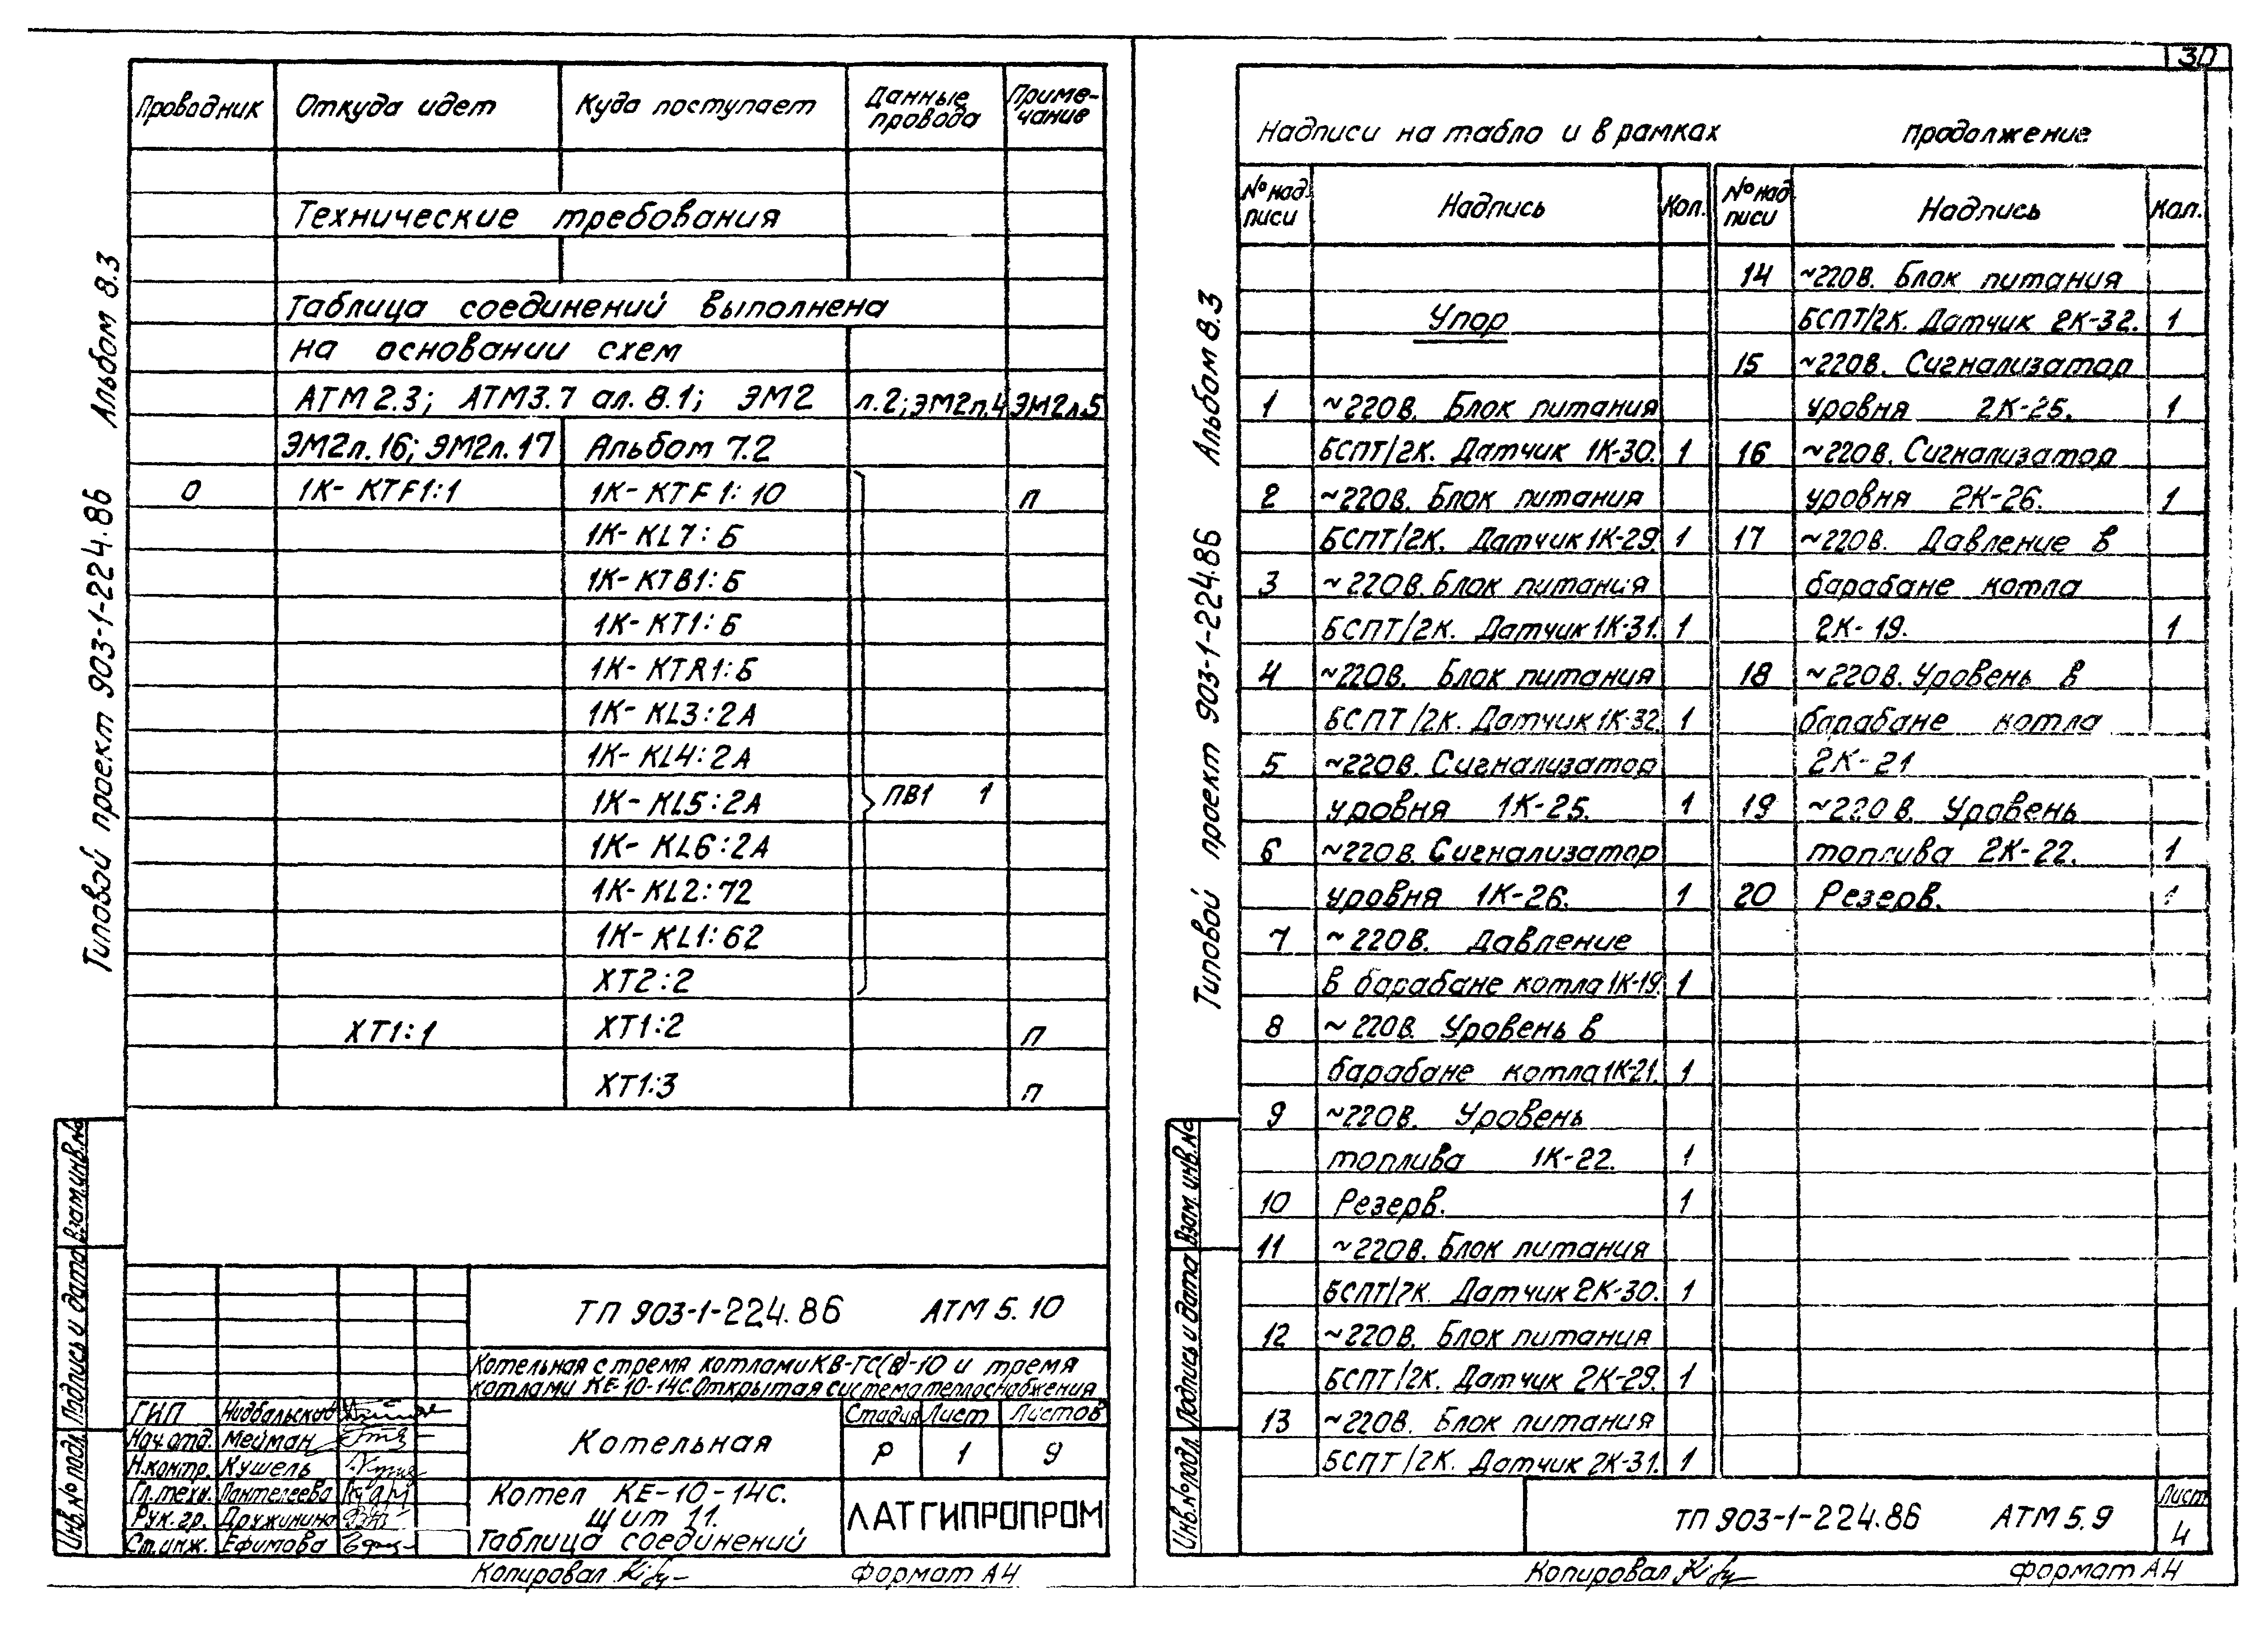 30
Альбом 8.3
Типовой проект 903-1-224.86
Проводник Откуда идет Куда поступает Данные провода Примечание
Технические требования
Таблица соединений выполнена
на основании схем
АТМ 2.3; АТМ3.7 ал. 8.1; ЭМ2 л.2; ЭМ2л.4 ЭМ2л.5
ЭМ2л.16; ЭМ2л.17 Альбом 7.2
0 1К-КТF1:1 1К-КТF1:10 П
1К-KL7:Б
1К-КТВ1:Б
1К-КТ1:Б
1К-КТR1:Б
1К-KL3:2А
1К-KL4:2А
1К-KL5:2А ПВ1 1
1К-KL6:2А
1К-KL2:72
1К-KL1:62
ХТ2:2
ХТ1:1 ХТ1:2 П
ХТ1:3 П
Взам.инв.№
Подпись и дата
Инв.№ подл.
ТП 903-1-224.86 АТМ 5.10
Котельная с тремя котлами КВ-ТС(В)-10 и тремя
котлами КЕ-10-14С. Открытая система теплоснабжения
ГИП Нидбальский
Нач.отд. Мейман
Н.контр. Кушель
Гл.техн. Пантелеева
Рук.гр. Дружинина
Ст.инж. Ефимова
Котельная
Стадия Лист Листов
Р 1 9
Котел КЕ-10-14С.
Щит 11.
Таблица соединений
ЛАТГИПРОПРОМ
Копировал
Формат А4
Альбом 8.3
Типовой проект 903-1-224.86
Надписи на табло и в рамках продолжение
№ надписи Надпись Кол.
Упор
1 ~220В. Блок питания
БСПТ/2К. Датчик 1К-30. 1
2 ~220В. Блок питания
БСПТ/2К. Датчик 1К-29. 1
3 ~220В. Блок питания
БСПТ/2К. Датчик 1К-31. 1
4 ~220В. Блок питания
БСПТ/2К. Датчик 1К-32. 1
5 ~220В. Сигнализатор
уровня 1К-25. 1
6 ~220В. Сигнализатор
уровня 1К-26. 1
7 ~220В. Давление
в барабане котла 1К-19. 1
8 ~220В. Уровень в
барабане котла 1К-21. 1
9 ~220В. Уровень
топлива 1К-22. 1
10 Резерв. 1
11 ~220В. Блок питания
БСПТ/2К. Датчик 2К-30. 1
12 ~220В. Блок питания
БСПТ/2К. Датчик 2К-29. 1
13 ~220В. Блок питания
БСПТ/2К. Датчик 2К-31. 1
№ надписи Надпись Кол.
14 ~220В. Блок питания
БСПТ/2К. Датчик 2К-32. 1
15 ~220В. Сигнализатор
уровня 2К-25. 1
16 ~220В. Сигнализатор
уровня 2К-26. 1
17 ~220В. Давление в
барабане котла
2К-19. 1
18 ~220В. Уровень в
барабане котла
2К-21
19 ~220В. Уровень
топлива 2К-22. 1
20 Резерв. 1
Взам.инв.№
Подпись и дата
Инв.№ подл.
ТП 903-1-224.86 АТМ 5.9
Лист
4
Копировал
Формат А4